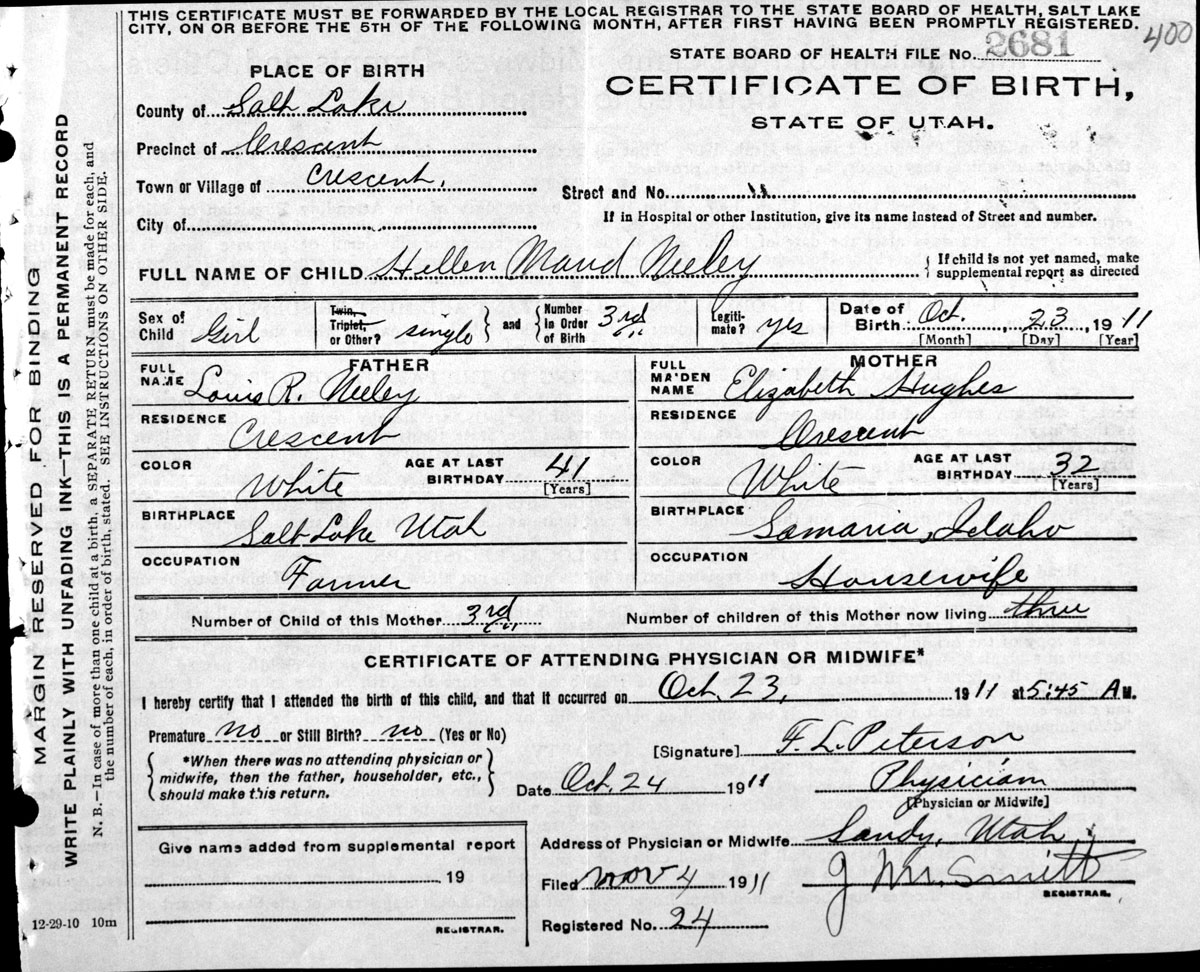 THIS CERTIFICATE MUST BE FORWARDED BY THE LOCAL REGISTRAR TO THE STATE BOARD OF HEALTH, SALT LAKE
CITY, ON OR BEFORE THE 5TH OF THE FOLLOWING MONTH, AFTER FIRST HAVING BEEN PROMPTLY REGISTERED.
400
STATE BOARD OF HEALTH FILE No. 2681
PLACE OF BIRTH
CERTIFICATE OF BIRTH,
STATE OF UTAH.
County of Salt Lake
Precinct of Crescent
Town or Village of Crescent,
Street and No. "
City of
If in Hospital or other Institution, give its name instead of Street and number.
FULL NAME OF CHILD Hellen Maud Neeley
{ If child is not yet named, make
supplemental report as directed
Sex of Child Girl
Twin, Triplet, or Other? single } and { Number in Order of Birth 3rd
Legiti-mate? yes
Date of Birth Oct. 23 1911
[Month] [Day] [Year]
FATHER
FULL NAME Louis R. Neeley
RESIDENCE Crescent
COLOR White
AGE AT LAST BIRTHDAY 41 [Years]
BIRTHPLACE Salt Lake Utah
OCCUPATION Farmer
MOTHER
FULL MAIDEN NAME Elizabeth Hughes
RESIDENCE Crescent
COLOR White
AGE AT LAST BIRTHDAY 32 [Years]
BIRTHPLACE Samaria, Idaho
OCCUPATION Housewife
Number of Child of this Mother 3rd
Number of children of this Mother now living three
CERTIFICATE OF ATTENDING PHYSICIAN OR MIDWIFE*
I hereby certify that I attended the birth of this child, and that it occurred on Oct. 23, 1911 at 5:45 A M.
Premature no or Still Birth? no (Yes or No)
{ *When there was no attending physician or
midwife, then the father, householder, etc.,
should make this return. }
[Signature] F. L. Peterson
Date Oct. 24 1911
Physician
[Physician or Midwife]
Address of Physician or Midwife Sandy, Utah
Give name added from supplemental report
19
REGISTRAR.
Filed Nov 4 1911
J M. Smith
REGISTRAR.
Registered No. 24
12-29-10 10m
MARGIN RESERVED FOR BINDING
WRITE PLAINLY WITH UNFADING INK—THIS IS A PERMANENT RECORD
N. B.—In case of more than one child at a birth, a SEPARATE RETURN must be made for each, and
the number of each, in order of birth, stated. SEE INSTRUCTIONS ON OTHER SIDE.